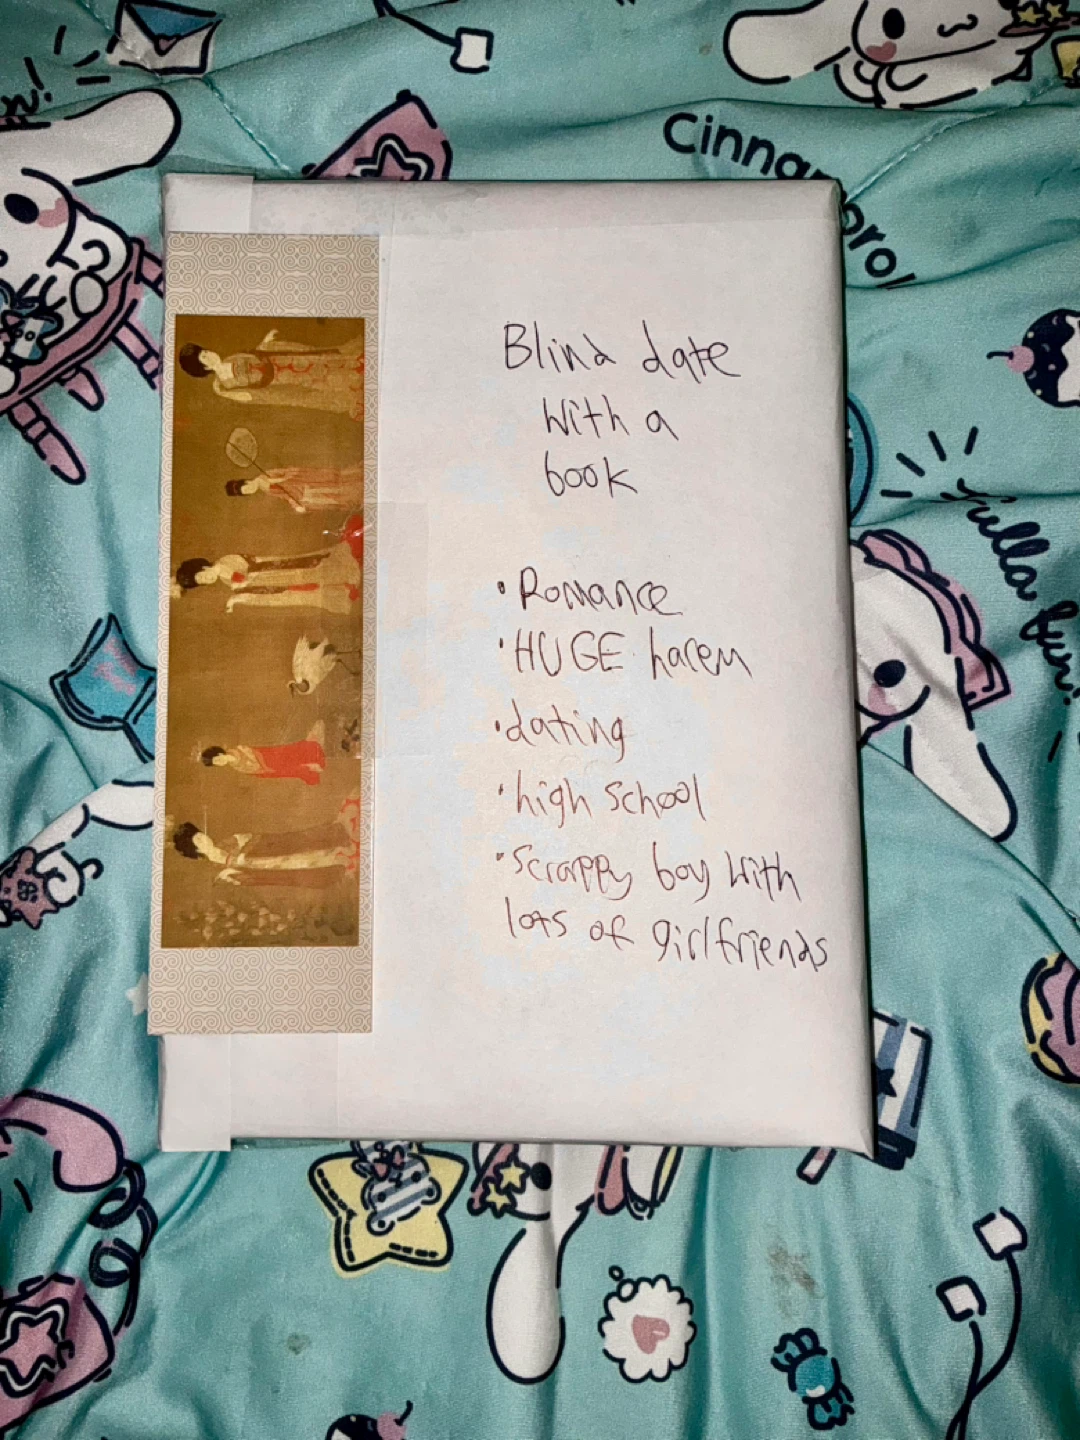 Cinnamorol
Blind date
With a
book
• Romance
• HUGE harem
• dating
• high School
• Scrappy boy With
lots of girlfriends
fulla fun!